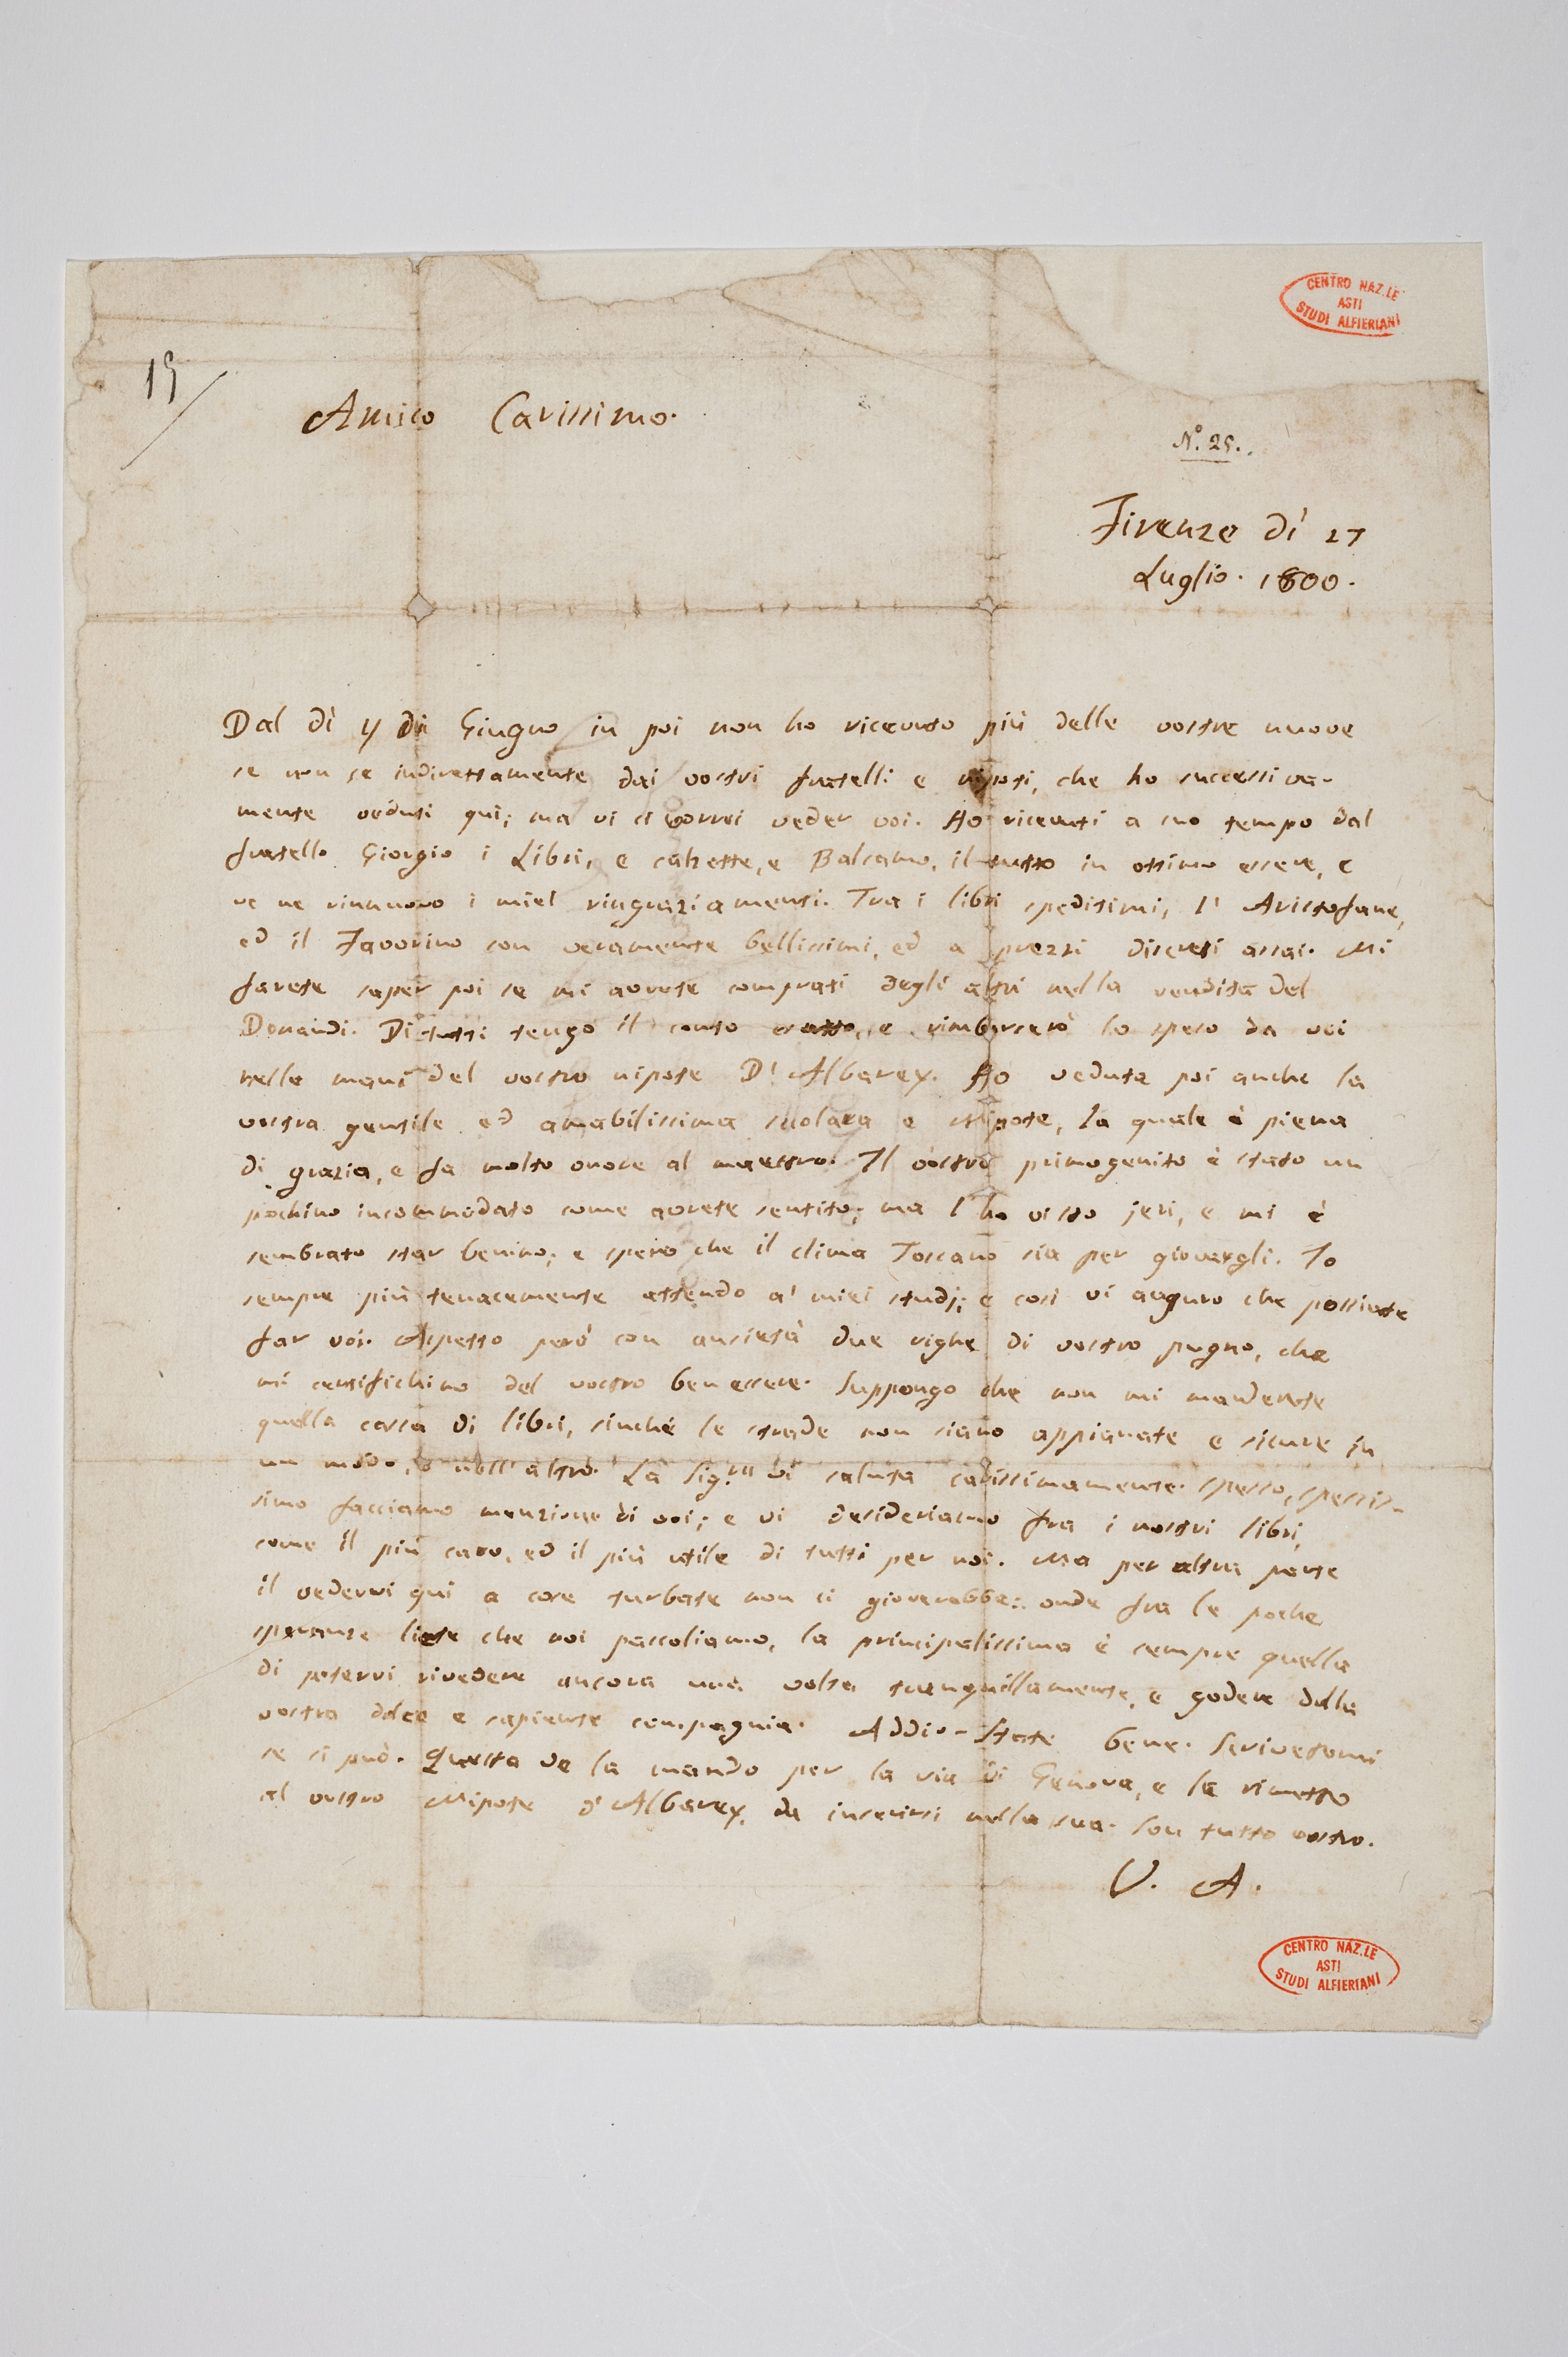 CENTRO NAZ.LE
ASTI
STUDI ALFIERIANI
19
Amico Carissimo.
N.° 25.
Firenze dì 27
Luglio. 1800.
Dal dì 4 di Giugno in poi non ho ricevuto più delle vostre nuove
se non se indirettamente dai vostri fratelli e nipoti, che ho successiva-
mente veduti quì; ma vi ci vorrei veder voi. Ho ricevuti a suo tempo dal
fratello Giorgio i Libri, e calzette, e Balsamo, il tutto in ottimo essere, e
ve ne rinnuovo i miei ringraziamenti. Tra i libri speditimi, l' Aristofane,
ed il Favorino son veramente bellissimi, ed a prezzi discreti assai. Mi
farete saper poi se mi avrete comprati degli altri nella vendita del
Donaudi. Di tutti tengo il conto esatto, e rimborserò lo spero da voi
nelle mani del vostro nipote D' Albarey. Ho veduta poi anche la
vostra gentile ed amabilissima scolara e Nipote, la quale è piena
di grazia, e fa molto onore al maestro. Il vostro primogenito è stato un
pochino incommodato come avrete sentito; ma l'ho visto jeri, e mi è
sembrato star benino; e spero che il clima Toscano sia per giovargli. Io
sempre più tenacemente attendo a' miei studj; e così vi auguro che possiate
far voi. Aspetto però con ansietà due righe di vostro pugno, che
mi certifichino del vostro ben essere. Suppongo che non mi manderete
quella cassa di libri, sinchè le strade non siano appianate e sicure in
un modo, o nell' altro. La Sig.ra vi saluta carissimamente. spesso, spessis-
simo facciamo menzione di voi; e vi desideriamo fra i nostri libri,
come il più caro, ed il più utile di tutti per noi. Ma per altra parte
il vedervi qui a cose turbate non ci gioverebbe: onde fra le poche
speranze liete che noi pascoliamo, la principalissima è sempre quella
di potervi rivedere ancora una volta tranquillamente, e godere della
vostra dolce e sapiente compagnia. Addio. State bene. Scrivetemi
se si può. Questa ve la mando per la via di Genova, e la rimetto
al vostro Nipote d' Albarey, da inserirsi nella sua. Son tutto vostro.
V. A.
CENTRO NAZ.LE
ASTI
STUDI ALFIERIANI